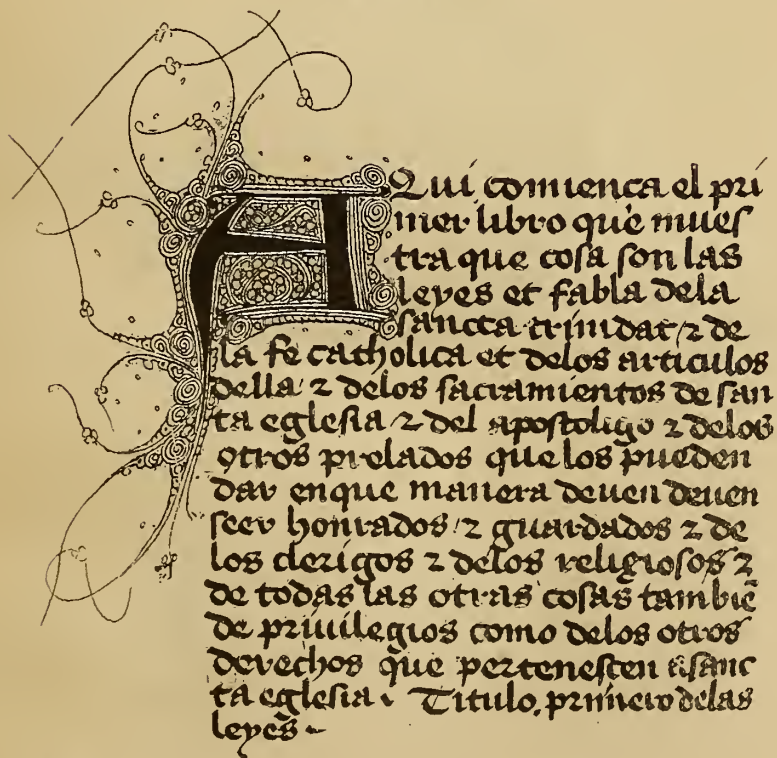 AQui comiença el pri
mer libro que mues
tra que cosa son las
leyes et fabla dela
sancta trinidat ⁊ de
la fe catholica et delos articulos
della ⁊ delos sacramientos de san
ta eglesia ⁊ del apostoligo ⁊ delos
otros prelados que los pueden
dar enque manera deuen deuen
seer honrados ⁊ guardados ⁊ de
los clerigos ⁊ delos religiosos ⁊
de todas las otras cosas tambiē
de priuilegios como delos otros
derechos que pertenesçen asanc
ta eglesia. Titulo. primero delas
leyes.